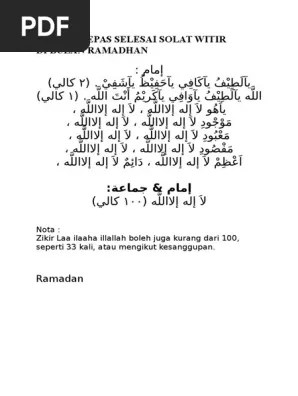 PDF
EPAS SELESAI SOLAT WITIR
RAMADHAN
إمام :
يآلَطِيْفُ يآكَافِي يآحَفِيْظُ يآشَفِيْ. (٢ كالي)
اللَّه يآلَطِيْفُ يآوَافِي يآكَرِيْمُ أَنْتَ اللَّه. (١ كالي)
يآهُو لآ إله إلااللَّه ، لآ إله إلااللَّه ،
مَوْجُودٍ لآ إله إلااللَّه ، لآ إله إلااللَّه ،
مَعْبُودٍ لآ إله إلااللَّه ، لآ إله إلااللَّه ،
مَقْصُودٍ لآ إله إلااللَّه ، لآ إله إلااللَّه ،
اَعْظِمْ لآ إله إلااللَّه ، دَائِمُ لآ إله إلااللَّه ،
إمام & جماعة:
لآ إله إلااللَّه (١٠٠ كالي)
Nota :
Zikir Laa ilaaha illallah boleh juga kurang dari 100,
seperti 33 kali, atau mengikut kesanggupan.
Ramadan